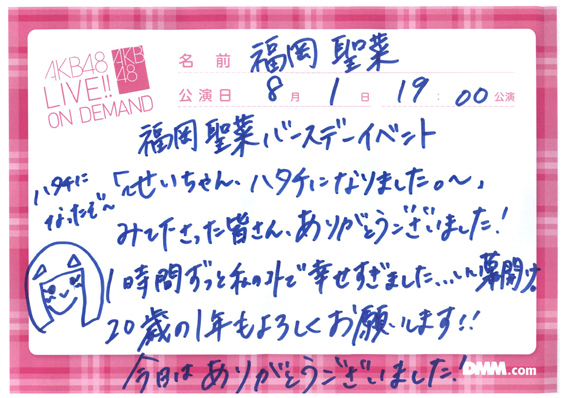 AKB48
LIVE!!
ON DEMAND
AKB
48
名前 福岡 聖菜
公演日 8月 1日 19:00公演
福岡聖菜バースデーイベント
ハタチに
なったぞ〜
「〜せいちゃん、ハタチになりました。〜」
みて下さった皆さん、ありがとうございました!
1時間ずっと私の外で幸せすぎました…いい幕開け!
20歳の1年もよろしくお願いします!!
今日はありがとうございました!
DMM.com